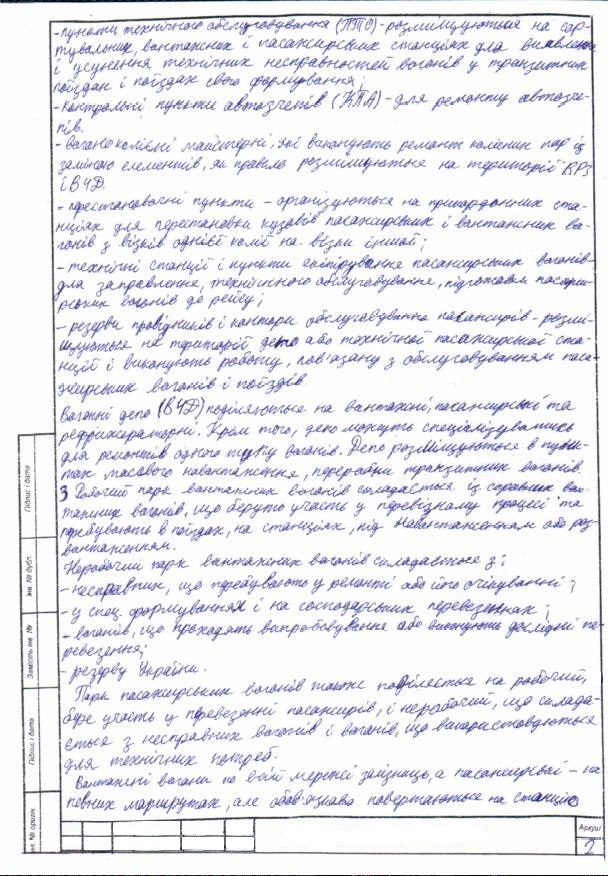 - пункти технічного обслуговування (ПТО) - розміщуються на сор-
тувальних, вантажних і пасажирських станціях для виявлення
і усунення технічних несправностей вагонів у транзитних
поїздах і поїздах свого формування;
- контрольні пункти автозчепів (КПА) - для ремонту автозче-
пів.
- вагоноколісні майстерні, які виконують ремонт колісних пар із
заміною елементів, як правило розміщуються на території ВРЗ
і ВЧД.
- перестановочні пункти - організуються на прикордонних ста-
нціях для перестановки кузовів пасажирських і вантажних ва-
гонів з візків однієї колії на візки іншої;
- технічні станції і пункти екіпірування пасажирських вагонів-
для заправлення, технічного обслуговування, підготовки пасажи-
рських вагонів до рейсу;
- резерви провідників і контори обслуговування пасажирів - розмі-
щуються на території депо або технічної пасажирської ста-
нції і виконують роботу, пов'язану з обслуговуванням паса-
жирських вагонів і поїздів.
Вагонні депо (ВЧД) поділяються на вантажні, пасажирські та
рефрижераторні. Крім того, депо можуть спеціалізуватись
для ремонтів одного типу вагонів. Депо розміщуються в пунк-
тах масового навантаження, переробки транзитних вагонів.
3 Робочий парк вантажних вагонів складається із справних ван-
тажних вагонів, що беруть участь у перевізному процесі та
перебувають в поїздах, на станціях, під навантаженням або роз
вантаженням.
Неробочий парк вантажних вагонів складається з:
- несправних, що перебувають у ремонті або його очікуванні;
- у спец. формуваннях і на господарських перевезеннях;
- вагонів, що проходять випробовування або виконують дослідні пе-
ревезення;
- резерву України.
Парк пасажирських вагонів також поділяється на робочий,
бере участь у перевезенні пасажирів, і неробочий, що склада-
ється з несправних вагонів і вагонів, що використовуються
для технічних потреб.
Вантажні вагони по всій мережі залізниць, а пасажирські - на
певних маршрутах, але обов'язково повертаються на станцію
Підпис і дата
Інв. № дубл.
Замість інв. №
Підпис і дата
Інв. № оригін
Аркуш
2